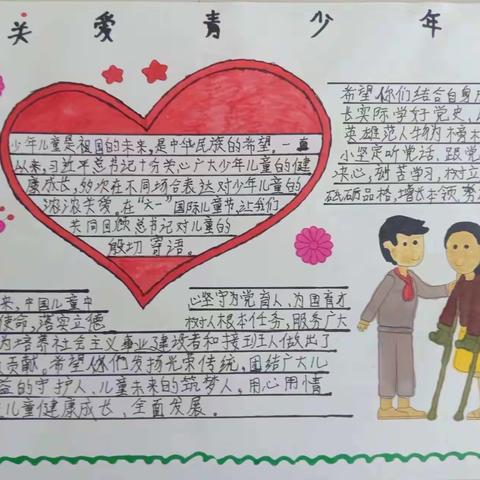 关爱青少年
少年儿童是祖国的未来,是中华民族的希望。一直
以来,习近平总书记十分关心广大少年儿童的健
康成长,多次在不同场合表达对少年儿童的
浓浓关爱。在“六一”国际儿童节,让我们
共同回顾总书记对儿童的
殷切寄语。
希望你们结合自身成
长实际学好党史,
英雄范人物为榜
小坚定听党话、跟党
决心,刻苦学习,树立
砥砺品格,增长本领,努
来,中国儿童中
使命,落实立德
心坚守为党育人、为国育才
树人根本任务,服务广大
为培养社会主义事业建设者和接班人做出了
贡献。希望你们发扬光荣传统,团结广大儿
益的守护人、儿童未来的筑梦人,用心用情
儿童健康成长、全面发展。